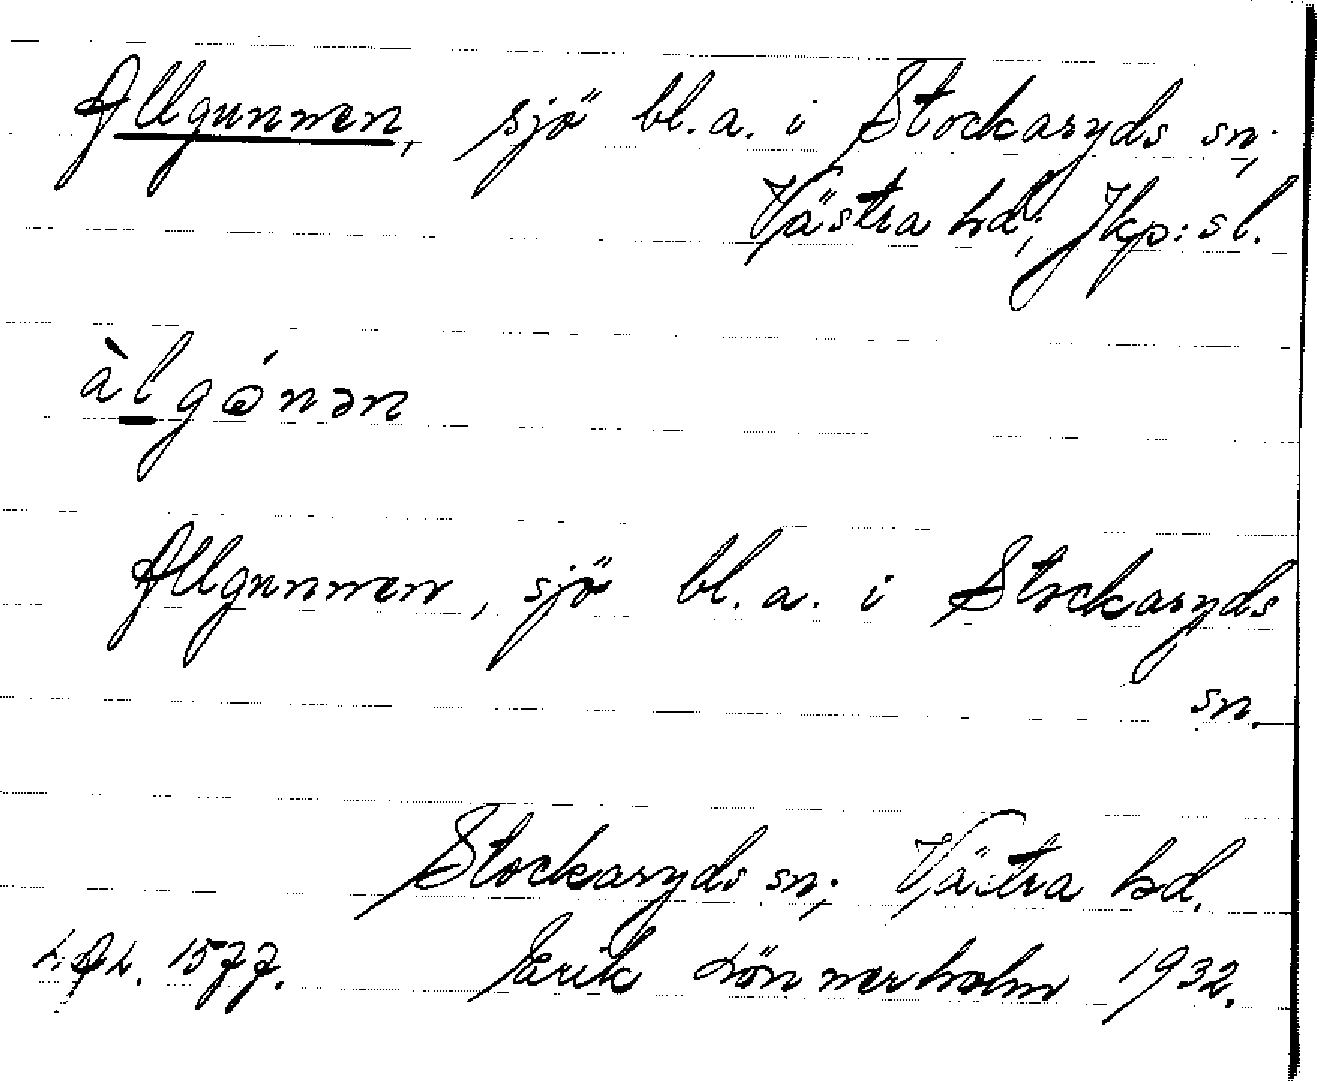 Allgunnen, sjö bl.a. i Stockaryds sn;
Västra hd; Jkp:s l.
àlgónən
Allgunnen, sjö bl.a. i Stockaryds
sn.
Stockaryds sn; Västra hd.
1577. Erik Lönnerholm 1932.